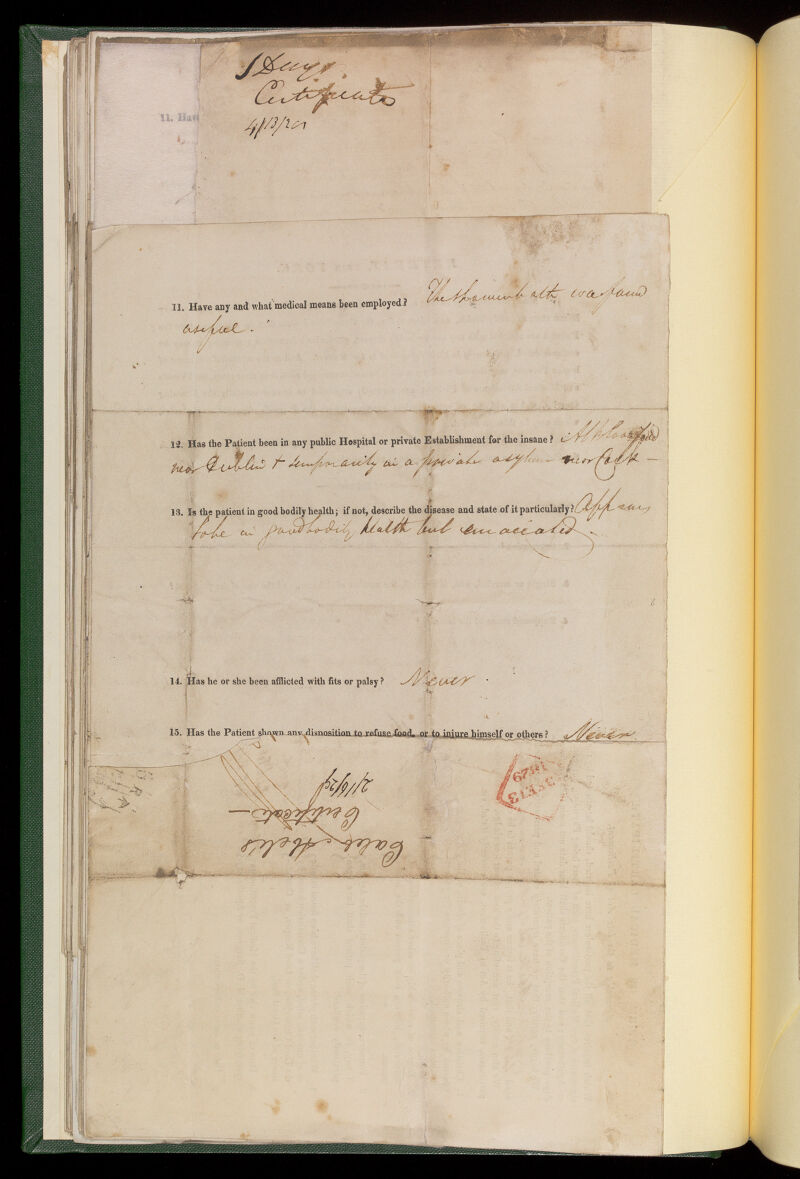 J Days
Certificate
4/13/20
11. Hav
11. Have any and what medical means been employed? The shower bath was found
useful.
12. Has the Patient been in any public Hospital or private Establishment for the insane? At Bloomfield
near Dublin & temporarily in a private asylum near Cork —
13. Is the patient in good bodily health; if not, describe the disease and state of it particularly? Appears
to be in good bodily health but emaciated.
14. Has he or she been afflicted with fits or palsy? Never.
15. Has the Patient shown any disposition to refuse food, or to injure himself or others? Never
Certificate —
1829